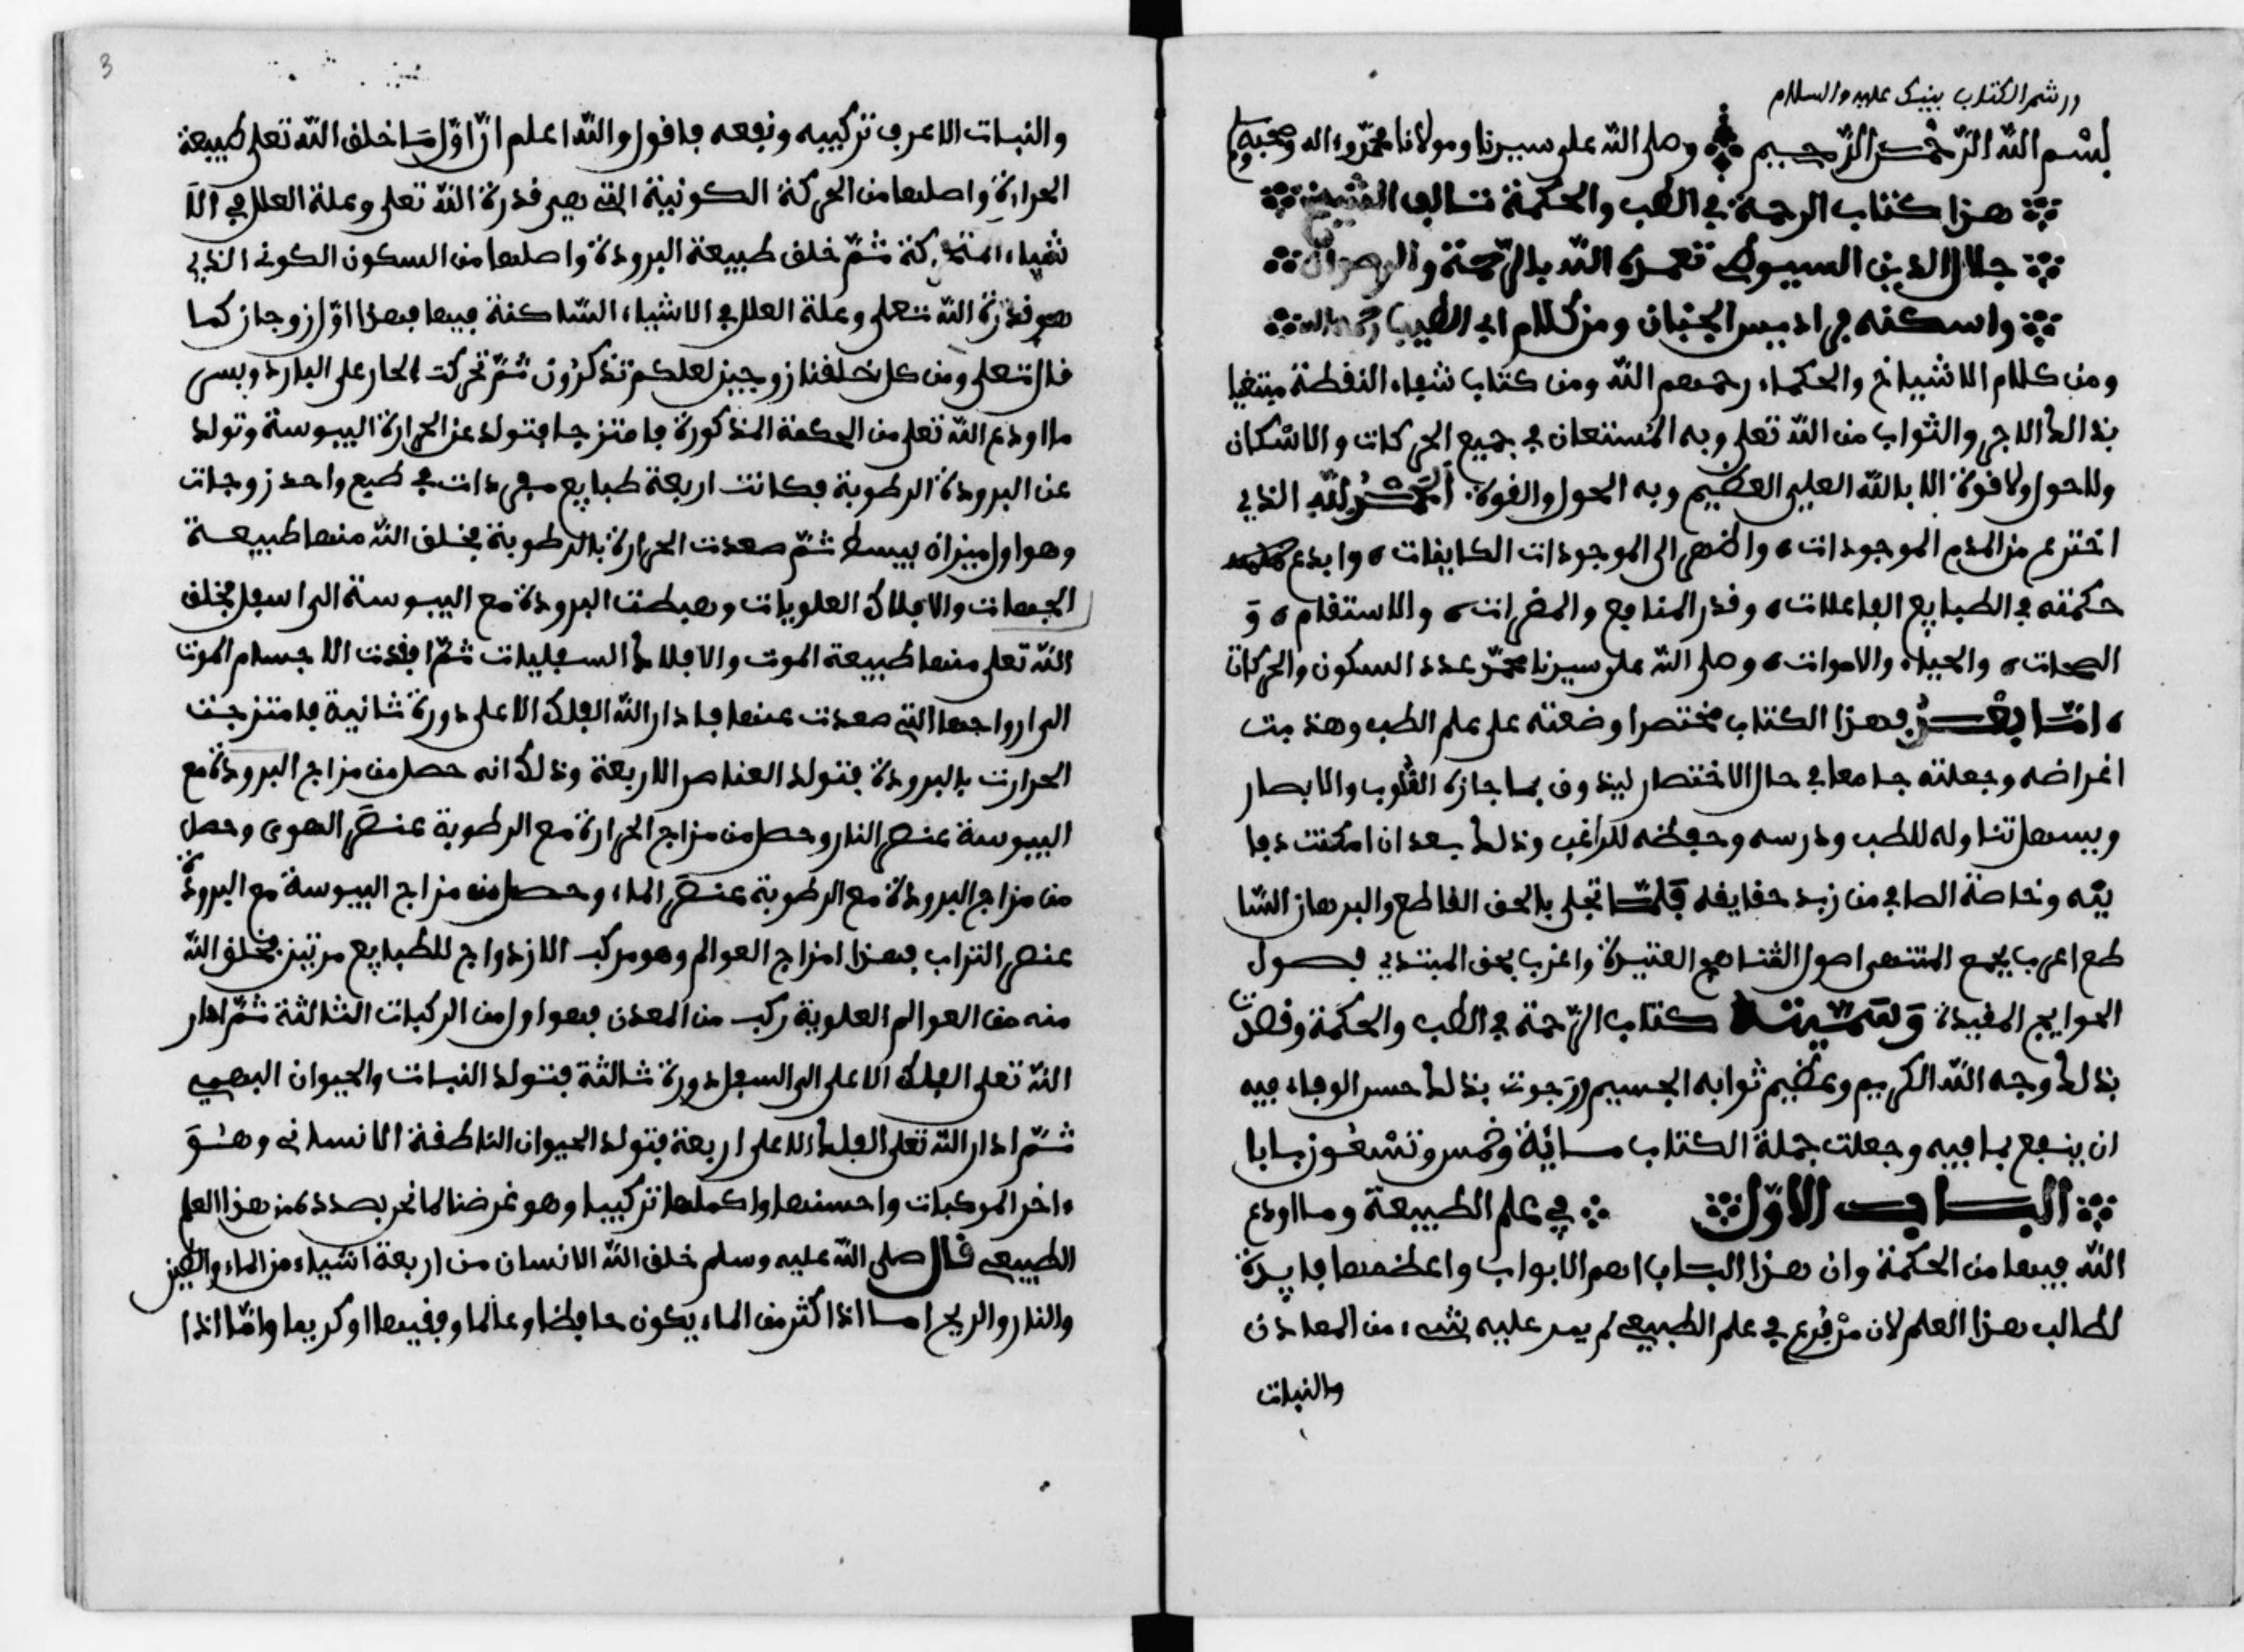 بسم الله الرحمن الرحيم وصلى الله على سيدنا ومولانا محمد وءاله وصحبه
هذا كتاب الرحمة في الطب والحكمة تاليف الشيخ
جلال الدين السيوطي تغمده الله بالرحمة والرضوان
واسكنه في اديس الجنان ومن كلام ابي الطيب رحمه الله
ومن كلام الاشياخ والحكماء رحمهم الله ومن كتاب شفاء النفطة مبتغيا
بذالك الاجر والثواب من الله تعلى وبه المستعان في جميع الحركات والاسكان
ولاحول ولا قوة الا بالله العلي العظيم وبه الحول والقوة الحمد لله الذي
اخترع من العدم الموجودات واظهر الى الموجودات الكايفات وابدع
حكمته في الطبايع الفاعلات وقدر المنافع والمضرات والاستقام و
الصحات والحياء والاموات وصلى الله على سيدنا محمد عدد السكون والحركات
اما بعد فهذا الكتاب مختصرا وضعته على علم الطب وهذبت
اغراضه وجعلته جامعا في حال الاختصار ليذوق بما جازه القلوب والابصار
ويسهل تناوله للطب ودرسه وحفظه للراغب وذلك بعد ان امكنت دفا
يقه وخاصة الصافي من زبد حقايقه فلما تجلى بالحق القاطع والبرهان السا
طع اعرب بجمع المنتهى اصول القناهج العتيدة واغرب بحق المبتدي فصول
الحوايج المفيدة وسميته كتاب الرحمة في الطب والحكمة وقصدت
بذلك وجه الله الكريم وعظيم ثوابه الجسيم ورجوت بذلك حسن الوفاء فيه
ان ينفع بما فيه وجعلت جملة الكتاب ماية وخمس وتسعون بابا
الباب الاول في علم الطبيعة وما اودع
الله فيها من الحكمة وان هذا الباب اهم الابواب واعظمها فايدة
لطالب هذا العلم لان من فرع في علم الطبيعي لم يمر عليه شيء من المعادن
والنبات
3
والنبات الا عرف تركيبه ونفعه فاقول والله اعلم ان اول ما خلق الله تعلى طبيعة
الحرارة واصلها من الحركة الكونية التي هي قدرة الله تعلى وعلة العلل في الا
شياء المتحركة ثم خلق طبيعة البرودة واصلها من السكون الكوني الذي
هو قدرة الله تعلى وعلة العلل في الاشياء الساكنة فيها فهذا اول زوجان كما
قال تعلى ومن كل خلقنا زوجين لعلكم تذكرون ثم تحركت الحار على البارد وبسى
ما اودع الله تعلى من الحكمة المذكورة فامتزجا فتولد عن الحرارة اليبوسة وتولد
عن البرودة الرطوبة فكانت اربعة طبايع مفردات في طبع واحد زوجات
وهو اول ميزان بيسط ثم صعدت الحرارة بالرطوبة فخلق الله منها طبيعة
الجهات والافلاك العلويات وهبطت البرودة مع اليبوسة الى اسفل فخلق
الله تعلى منها طبيعة الموت والافلاك السفليات ثم افقدت الاجسام الموت
الى ارواحها التي صعدت عنها فادار الله الفلك الاعلى دورة ثانية فامتزجت
الحرارت بالبرودة فتولد العناصر الاربعة وذلك انه حصل من مزاج البرودة مع
اليبوسة عنصر النار وحصل من مزاج الحرارة مع الرطوبة عنصر الهوى وحصل
من مزاج البرودة مع الرطوبة عنصر الماء وحصل منه مزاج اليبوسة مع البرودة
عنصر التراب فهذا امزاج العوالم وهو مركب الازدواج للطبايع مرتين فخلق الله
منه من العوالم العلوية ركب من المعدن فهو اول من الركبات الثالثة ثم ادار
الله تعلى الفلك الاعلى الى السفل دورة ثالثة فتولد النبات والحيوان البهمي
ثم ادار الله تعلى الفلك الاعلى اربعة فتولد الحيوان الناطفة الانساني وهو
ءاخر المركبات واحسنها واكملها تركيبا وهو غرضنا لما نحن بصدد من هذا العلم
الطبيعي قال صلى الله عليه وسلم خلق الله الانسان من اربعة اشياء من الماء والطين
والنار والريح اما اذا كثر من الماء يكون حافظا وعالما وفقيها او كريما واما اذا